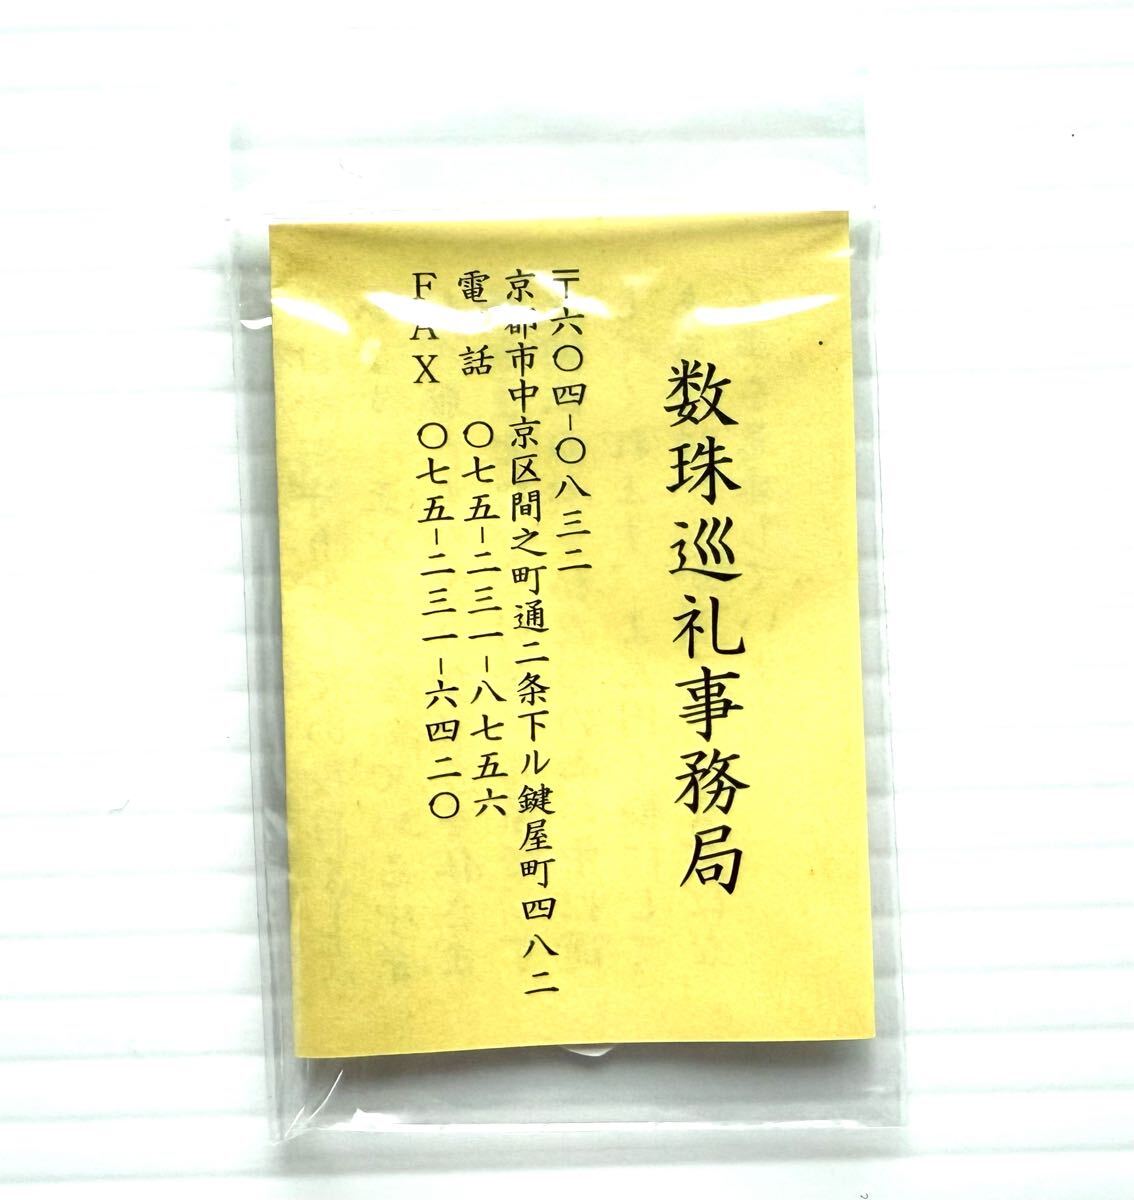 数珠巡礼事務局
〒六〇四-〇八三二
京都市中京区間之町通二条下ル鍵屋町四八二
電話 〇七五-二三一-八七五六
FAX 〇七五-二三一-六四二〇